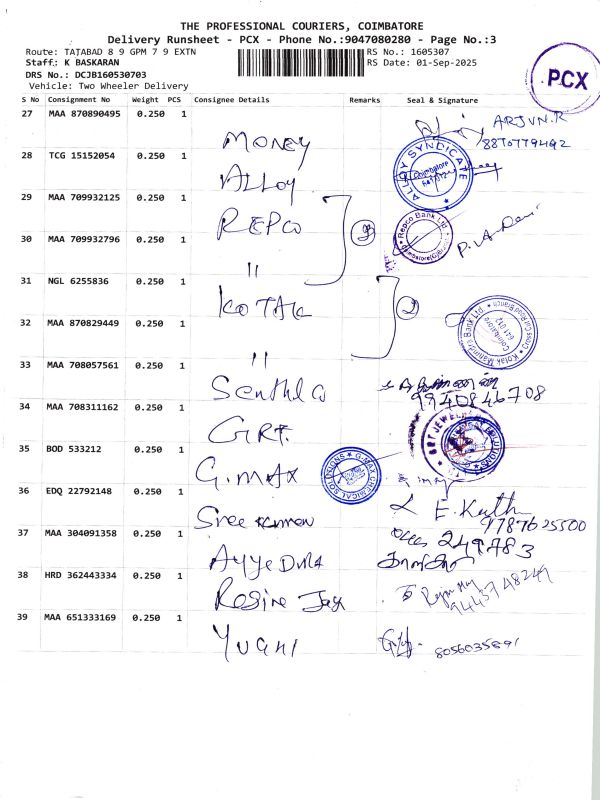 THE PROFESSIONAL COURIERS, COIMBATORE
Delivery Runsheet - PCX - Phone No.:9047080280 - Page No.:3
Route: TATABAD 8 9 GPM 7 9 EXTN
RS No.: 1605307
Staff.: K BASKARAN
RS Date: 01-Sep-2025
DRS No.: DCJB160530703
Vehicle: Two Wheeler Delivery
PCX
S No Consignment No Weight PCS Consignee Details Remarks Seal & Signature
27 MAA 870890495 0.250 1 Money
ARJUN.R
8870779492
28 TCG 15152054 0.250 1 Alloy
ALLOY SYNDICATE
Coimbatore
29 MAA 709932125 0.250 1 REPCO
Repco Bank Ltd
30 MAA 709932796 0.250 1 "
31 NGL 6255836 0.250 1 KOTAK
2
Kotak Mahindra Bank Ltd.
Cross Cut Road Branch
Coimbatore
641 012
32 MAA 870829449 0.250 1 "
33 MAA 708057561 0.250 1
9940846708
34 MAA 708311162 0.250 1 GRT.
35 BOD 533212 0.250 1 G.MAX
G-MAX CHEMICAL SOLUTIONS
36 EDQ 22792148 0.250 1 Sree
E. Kuth
9787625500
37 MAA 304091358 0.250 1
249783
38 HRD 362443334 0.250 1
9443748249
39 MAA 651333169 0.250 1
8056035891